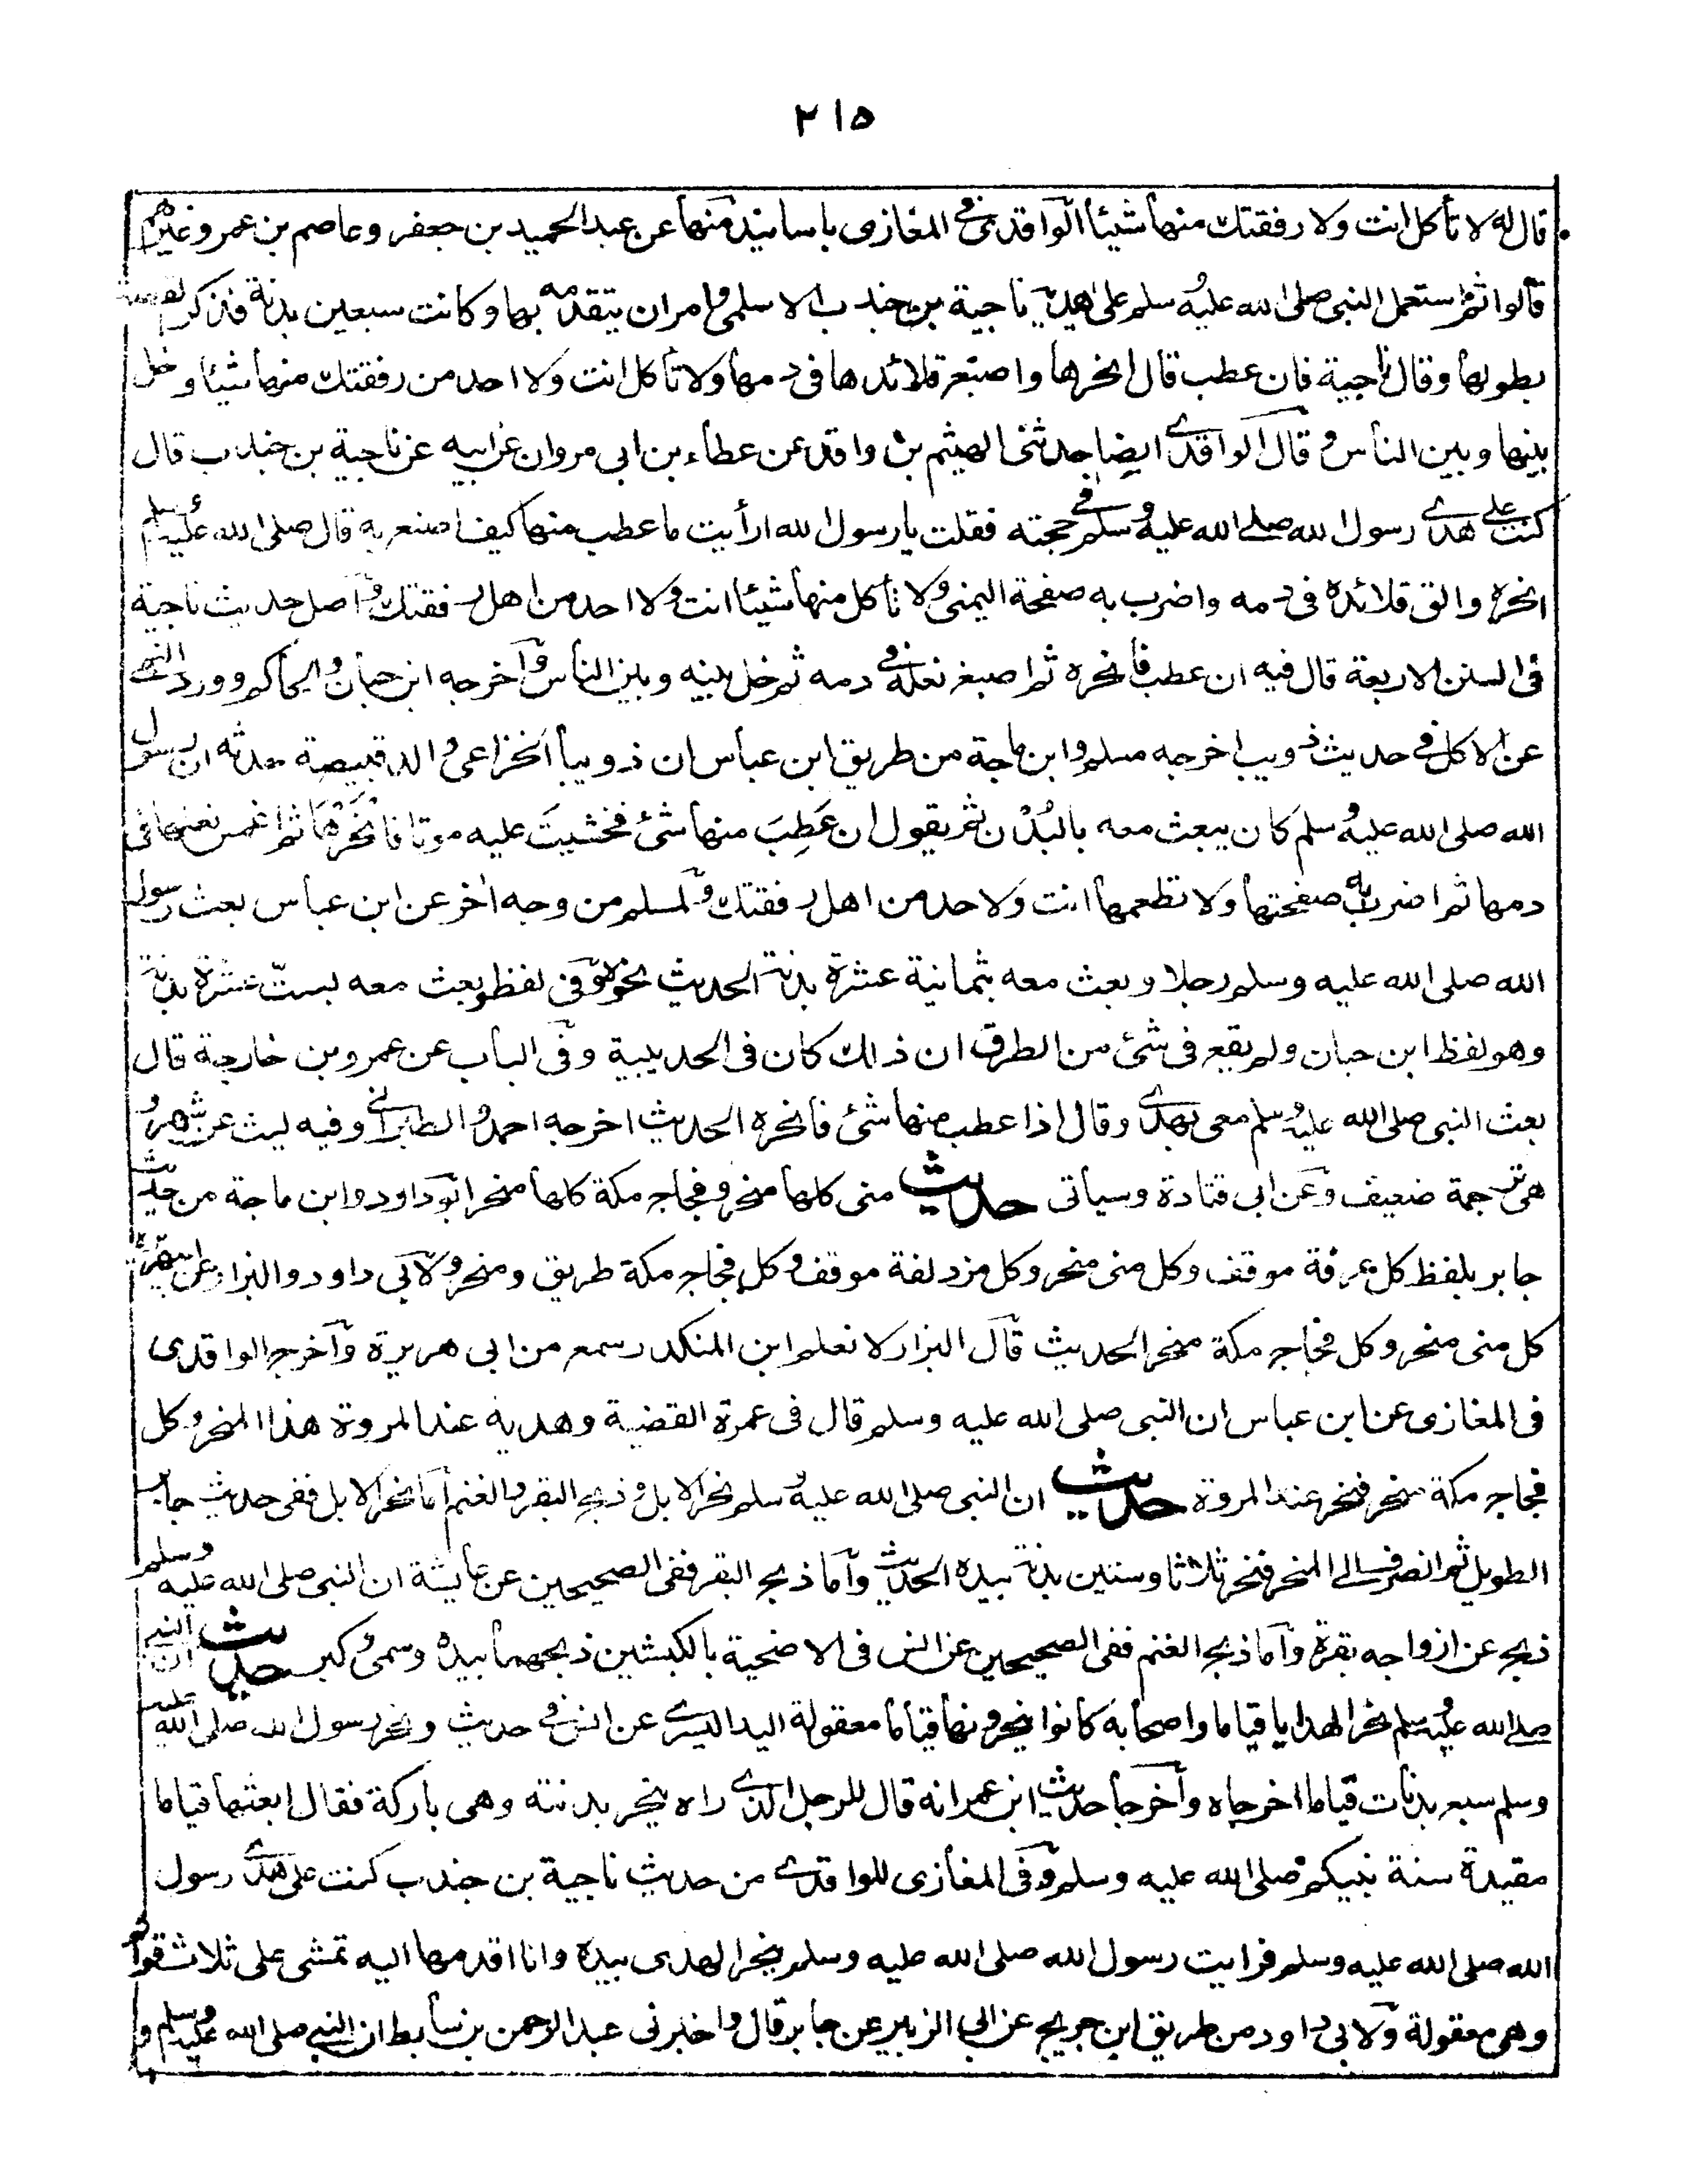 ٢١٥
قال له لا تأكل انت ولا رفقتك منها شيئا الواقدى فى المغازى باسانيد منها عن عبد الحميد بن جعفر وعاصم بن عمر وغيرهم
قالوا ثم استعمل النبى صلى الله عليه وسلم على هديه ناجية بن جندب الاسلمى وامر ان يتقدمه بها وكانت سبعين بدنة فذكر القصة
بطولها وقال ناجية فان عطب قال انحرها واصبغ قلائدها فى دمها ولا تأكل انت ولا احد من رفقتك منها شيئا وخل
بينها وبين الناس وقال الواقدى ايضا حدثنى الهيثم بن واقد عن عطاء بن ابى مروان عن ابيه عن ناجية بن جندب قال
كنت على هدى رسول الله صلى الله عليه وسلم فى حجته فقلت يا رسول الله ارأيت ما عطب منها كيف اصنع به قال صلى الله عليه وسلم
انحره والق قلائده فى دمه واضرب به صفحة اليمنى ولا تأكل منها شيئا انت ولا احد من اهل رفقتك واصل حديث ناجية
فى السنن الاربعة قال فيه ان عطب فأنحره ثم اصبغ نعله فى دمه ثم خل بينه وبين الناس واخرجه ابن حبان والحاكم وورد النهى
عن الاكل فى حديث ذويب اخرجه مسلم وابن ماجة من طريق ابن عباس ان ذويبا الخزاعى والد قبيصة حدثه ان رسول
الله صلى الله عليه وسلم كان يبعث معه بالبُدْن ثم يقول ان عَطِبَ منها شئ فخشيتَ عليه موتا فانْحَرْهَا ثم اغمس نعلها فى
دمها ثم اضرب به صفحتها ولا تطعمها انت ولا احد من اهل رفقتك ولمسلم من وجه اخر عن ابن عباس بعث رسول
الله صلى الله عليه وسلم رجلا وبعث معه بثمانية عشرة بدنة الحديث نحوه وفى لفظ وبعث معه بستّ عشرة بدنة
وهو لفظ ابن حبان ولم يقع فى شئ من الطرق ان ذلك كان فى الحديبية وفى الباب عن عمرو بن خارجة قال
بعث النبى صلى الله عليه وسلم معى بهدى وقال اذا عطب منها شئ فانحره الحديث اخرجه احمد والطبرانى وفيه ليث عن شهر و
هى ترجمة ضعيف وعن ابى قتادة وسياتى حديث منى كلها منحر وفجاج مكة كلها منحر ابو داود وابن ماجة من حديث
جابر بلفظ كل عرفة موقف وكل منى منحر وكل مزدلفة موقف وكل فجاج مكة طريق ومنحر ولابى داود والبزار عن ابى هريرة
كل منى منحر وكل فجاج مكة منحر الحديث قال البزار لا نعلم ابن المنكدر سمع من ابى هريرة واخرج الواقدى
فى المغازى عن ابن عباس ان النبى صلى الله عليه وسلم قال فى عمرة القضية وهديه عند المروة هذا المنحر وكل
فجاج مكة منحر فنحر عند المروة حديث ان النبى صلى الله عليه وسلم نحر الابل وذبح البقر والغنم اما نحر الابل ففى حديث جابر
الطويل ثم انصرف الى المنحر فنحر ثلاثا وستين بدنة بيده الحديث واما ذبح البقر ففى الصحيحين عن عايشة ان النبى صلى الله عليه وسلم
ذبح عن ازواجه بقرة واما ذبح الغنم ففى الصحيحين عن انس فى الاضحية بالكبشين ذبحهما بيده وسمى وكبر حديث ان النبى
صلى الله عليه وسلم نحر الهدايا قياما واصحابه كانوا ينحرونها قياما معقولة اليد اليسرى عن انس فى حديث ونحر رسول الله صلى الله عليه
وسلم سبع بدنات قياما اخرجاه واخرجا حديث ابن عمر انه قال للرجل الذى راه ينحر بدنته وهى باركة فقال ابعثها قياما
مقيدة سنة نبيكم صلى الله عليه وسلم وفى المغازى للواقدى من حديث ناجية بن جندب كنت على هدى رسول
الله صلى الله عليه وسلم فرايت رسول الله صلى الله عليه وسلم ينحر الهدى بيده وانا اقدمها اليه تمشى على ثلاث قوائم
وهى معقولة ولابى داود من طريق ابن جريج عن ابى الزبير عن جابر قال واخبرنى عبد الرحمن بن سابط ان النبى صلى الله عليه وسلم و